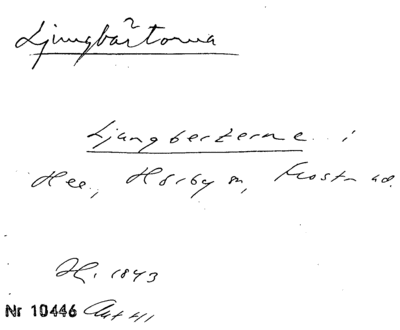 Ljungbåtorna
Ljungberterne i
Hee, Hørby m, Frosta hd.
H. 1843
Nr 10446 Aut 41